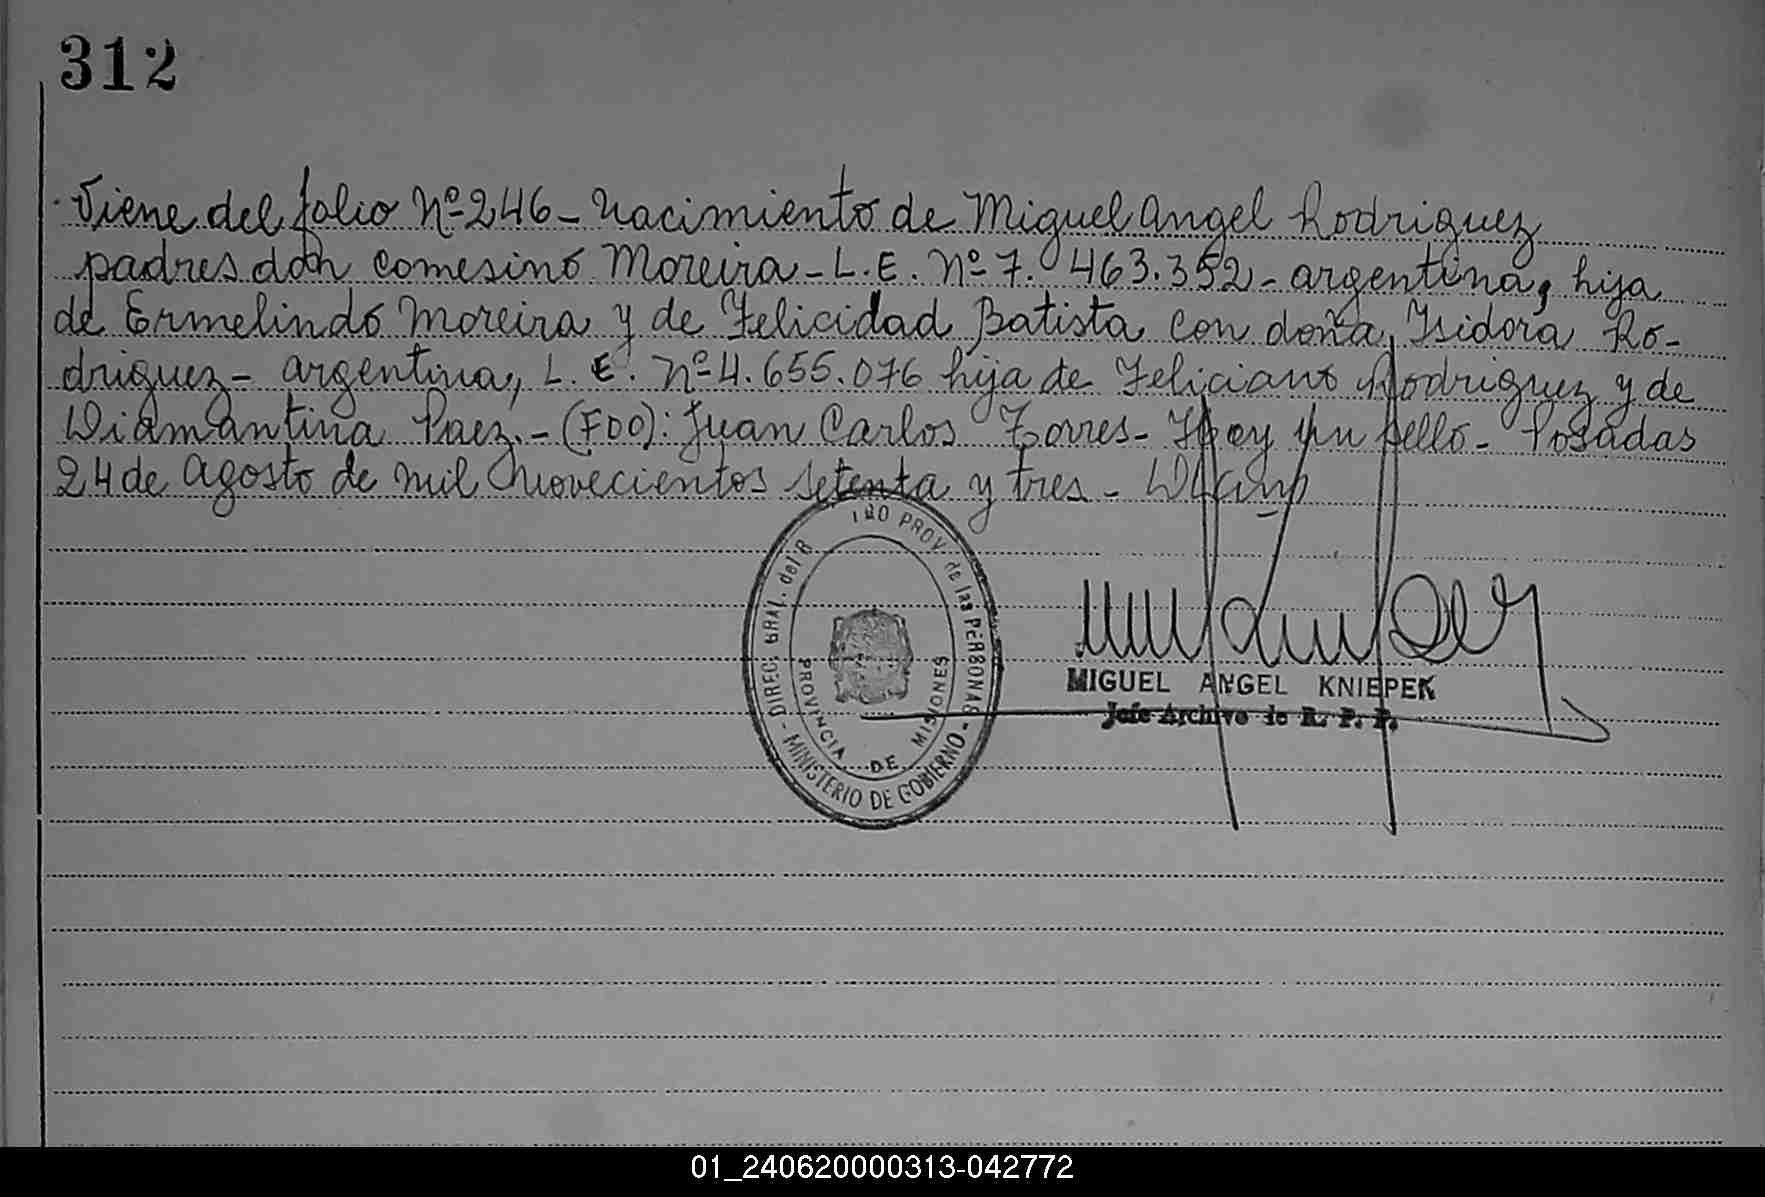 312
Viene del folio Nº 246 - Nacimiento de Miguel Angel Rodriguez
padres don Comesino Moreira - L.E. Nº 7.463.352 - argentina, hija
de Ermelindo Moreira y de Felicidad Batista con doña Isidora Ro-
driguez - argentina, L.E. Nº 4.655.076 hija de Feliciano Rodriguez y de
Diamantina Paez. - (FDO): Juan Carlos Torres - Hay un sello - Posadas
24 de Agosto de mil novecientos setenta y tres -
DIREC. GRAL. del R PROV. de las PERSONAS
PROVINCIA DE MISIONES
- MINISTERIO DE GOBIERNO -
MIGUEL ANGEL KNIEPEK
Jefe Archivo de R. P. P.
01_240620000313-042772